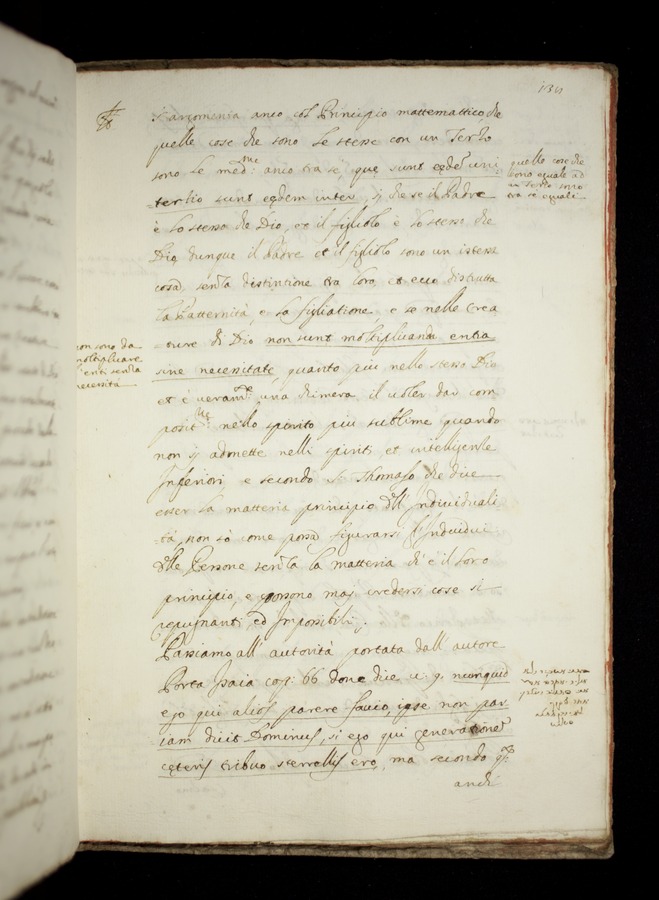 131
S'argomenta anco col Principio mattemattico, che
quelle cose che sono le stesse con un Terzo
sono le med:me anco tra se, que sunt eedem uni
tertio sunt eędem inter, si che se il Padre
è lo stesso che Dio, et il figliolo è lo stesso che
Dio, dunque il Padre et il figliolo sono un istessa
cosa, senza distintione tra loro, et ecco distrutta
la Patternità, e la figliatione, e se nelle Crea
ture di Dio non sunt moltiplicanda entia
sine necessitate, quanto piu nello stesso Dio
et è veram:te una chimera il voler dar com
posit:ne nello spirito piu sublime quando
non si admette nelli spiriti et intelligenze
Inferiori, e secondo S: Thomaso che dice
esser la matteria principio dell' Individuali
tà, non sò come possa figurarsi l'Individui
delle Persone senza la matteria ch'è il loro
principio, e possono maj credersi cose si
repugnanti ed Impossibili;.
Passiamo all' autorità portata dall' autore
Porta Isaia cap: 66 dove dice v: 9. nunquid
ego qui alios parere facio, ipse non par
iam dicit Dominus, si ego qui generationes
cęteris tribuo sterrilis ero, ma secondo
anchi
quelle cose che
sono equale ad
un terzo sono
tra se equali
non sono da
moltiplicare
enti senza
necessità